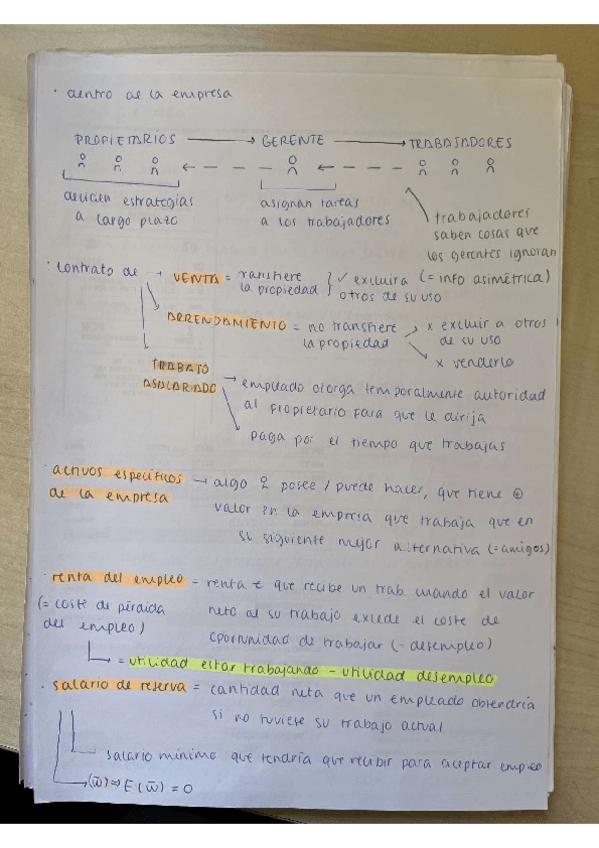 · dentro de la empresa
PROPIETARIOS → GERENTE → TRABAJADORES
deciden estrategias
a largo plazo
asignan tareas
a los trabajadores
trabajadores
saben cosas que
los gerentes ignoran
(= info asimétrica)
· contrato de → VENTA = transfiere
la propiedad } ✓ excluir a
otros de su uso
ARRENDAMIENTO = no transfiere
la propiedad
x excluir a otros
de su uso
x venderlo
TRABAJO
ASALARIADO → empleado otorga temporalmente autoridad
al propietario para que le dirija
paga por el tiempo que trabajas
· activos específicos
de la empresa → algo posee / puede hacer, que tiene ⊕
valor en la empresa que trabaja que en
su siguiente mejor alternativa (= amigos)
· renta del empleo = renta ec que recibe un trab. cuando el valor
(= coste de pérdida
del empleo)
neto al su trabajo excede el coste de
oportunidad de trabajar (- desempleo)
= utilidad estar trabajando - utilidad desempleo
· salario de reserva = cantidad neta que un empleado obtendría
si no tuviese su trabajo actual
salario mínimo que tendría que recibir para aceptar empleo
(w̄) ⇒ E (w̄) = 0